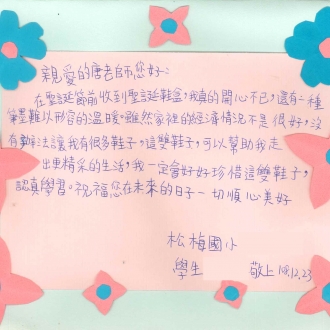 親愛的唐老師您好:
在聖誕節前收到聖誕鞋盒,我真的開心不已,還有一種
筆墨難以形容的溫暖。雖然家裡的經濟情況不是很好,沒
有辦法讓我有很多鞋子,這雙鞋子,可以幫助我走
出更精采的生活,我一定會好好珍惜這雙鞋子,
認真學習。祝福您在未來的日子一切順心美好
松梅國小
學生
敬上 108.12.23